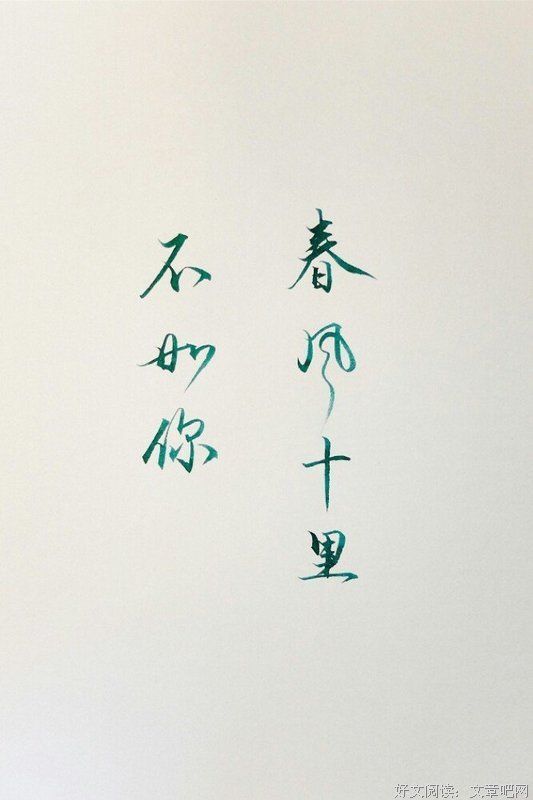 春风十里
不如你
好文阅读：文章吧网